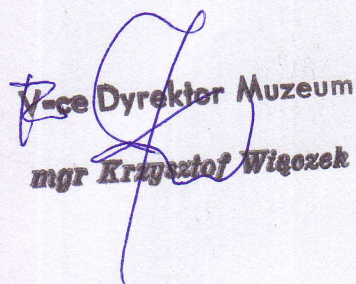 V-ce Dyrektor Muzeum
mgr Krzysztof Więczek